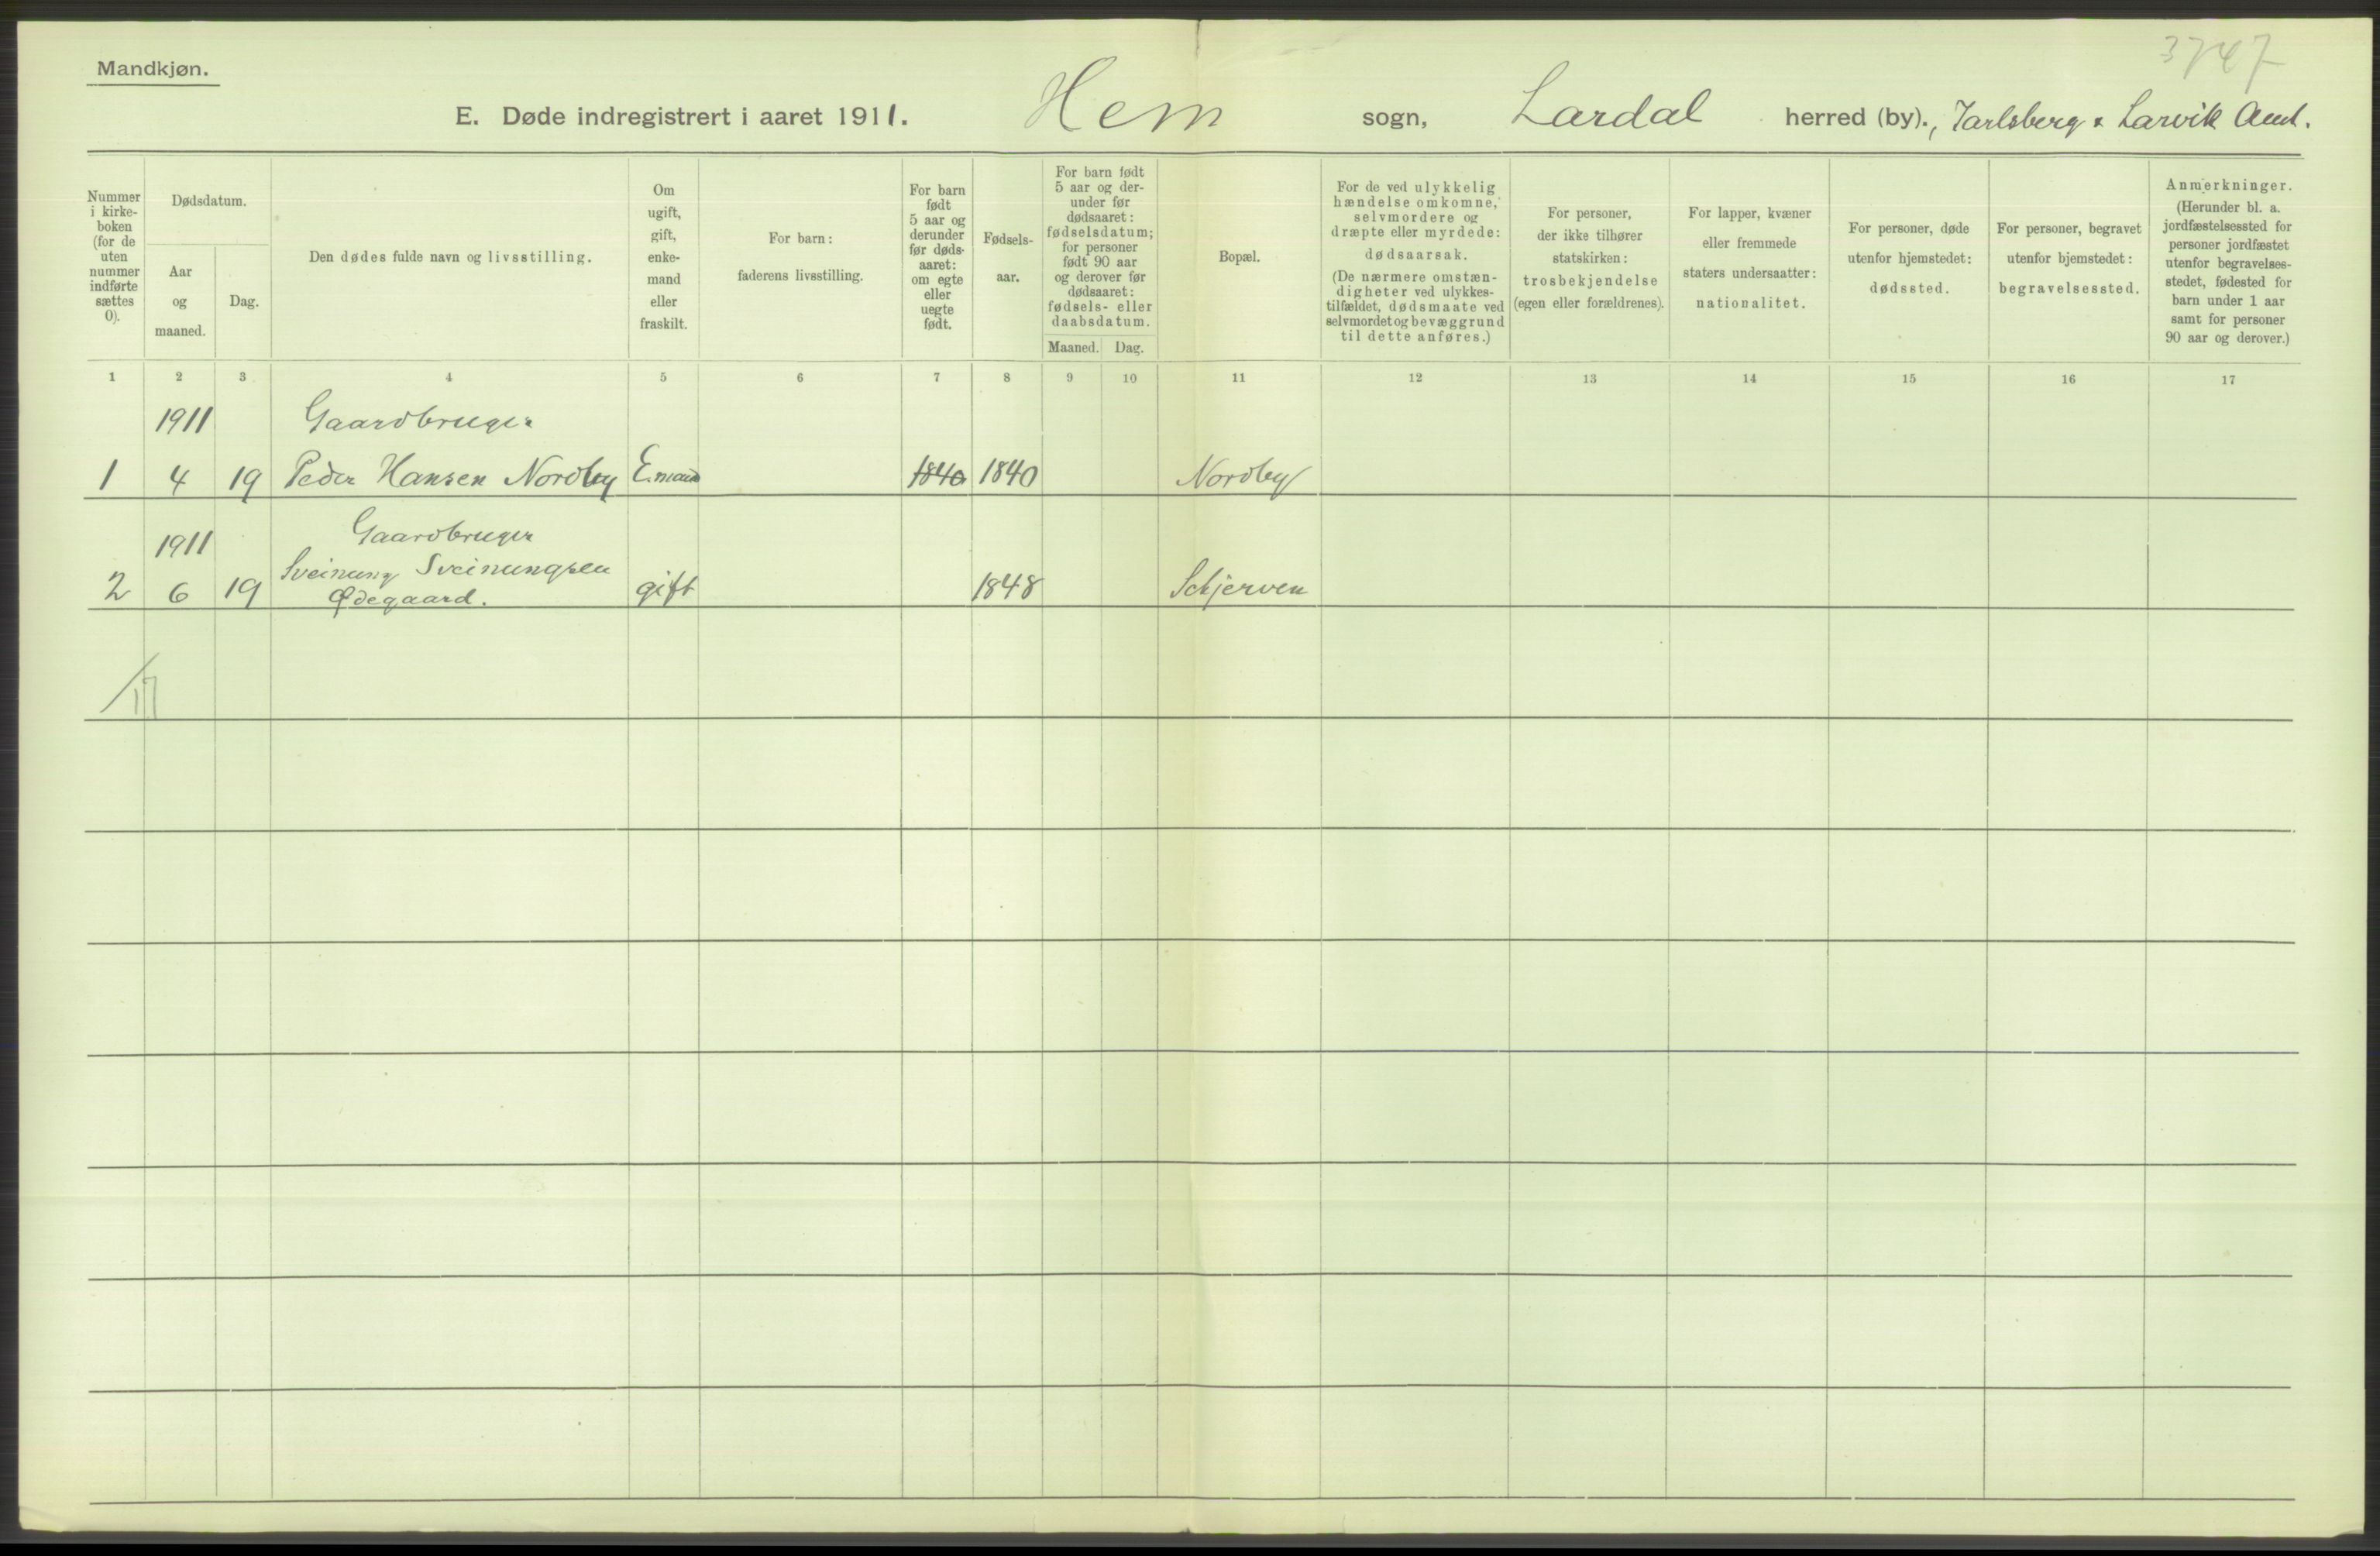 3747
Mandkjøn.
E. Døde indregistrert i aaret 1911. Hem sogn, Lardal herred (by)., Jarlsberg & Larvik Amt.
Nummer
i kirke-
boken
(for de
uten
nummer
indførte
sættes
0).
Dødsdatum.
Aar
og
maaned.
Dag.
Den dødes fulde navn og livsstilling.
Om
ugift,
gift,
enke-
mand
eller
fraskilt.
For barn:
faderens livsstilling.
For barn
født
5 aar og
derunder
før døds-
aaret:
om egte
eller
uegte
født.
Fødsels-
aar.
For barn født
5 aar og der-
under før
dødsaaret:
fødselsdatum;
for personer
født 90 aar
og derover før
dødsaaret:
fødsels- eller
daabsdatum.
Maaned. Dag.
Bopæl.
For de ved ulykkelig
hændelse omkomne,
selvmordere og
dræpte eller myrdede:
dødsaarsak.
(De nærmere omstæn-
digheter ved ulykkes-
tilfældet, dødsmaate ved
selvmordet og bevæggrund
til dette anføres.)
For personer,
der ikke tilhører
statskirken:
trosbekjendelse
(egen eller forældrenes).
For lapper, kvæner
eller fremmede
staters undersaatter:
nationalitet.
For personer, døde
utenfor hjemstedet:
dødssted.
For personer, begravet
utenfor hjemstedet:
begravelsessted.
Anmerkninger.
(Herunder bl. a.
jordfæstelsessted for
personer jordfæstet
utenfor begravelses-
stedet, fødested for
barn under 1 aar
samt for personer
90 aar og derover.)
1 2 3 4 5 6 7 8 9 10 11 12 13 14 15 16 17
1911 Gaardbruger
1 4 19 Peder Hansen Nordby E.mand 1840 1840 Nordby
1911 Gaardbruger
Sveinung Sveinungsen
2 6 19 Ødegaard. gift 1848 Schjerven